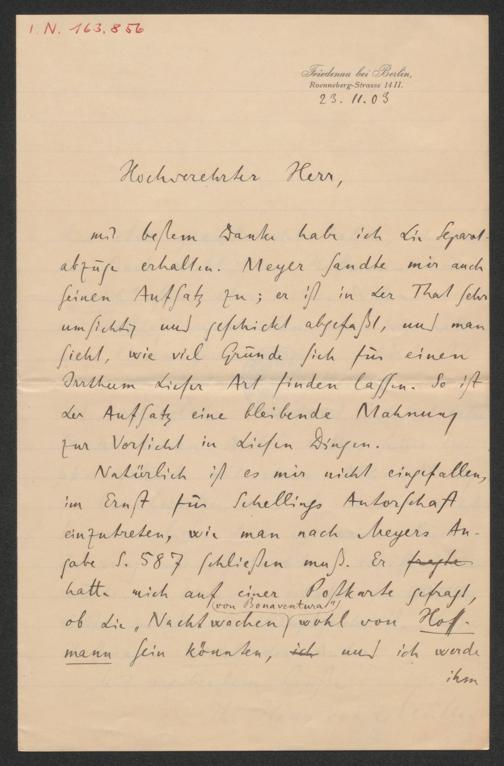 I. N. 163.856
Friedenau bei Berlin,
Roenneberg-Strasse 14 II.
23. 11. 03
Hochverehrter Herr,
mit beßtem Danke habe ich die Separat-
abzüge erhalten. Meyer sandte mir auch
seinen Aufsatz zu; er ist in der That sehr
umsichtig und geschickt abgefaßt, und man
sieht, wie viel Gründe sich für einen
Irrthum dieser Art finden lassen. So ist
der Aufsatz eine bleibende Mahnung
zur Vorsicht in diesen Dingen.
Natürlich ist es mir nicht eingefallen,
im Ernst für Schellings Autorschaft
einzutreten, wie man nach Meyers An-
gabe S. 587 schließen muß. Er fragte
hatte mich auf einer Postkarte gefragt,
(von Bonaventura")
ob die „Nachtwachen wohl von Hoff-
mann sein könnten, ich und ich werde
ihm